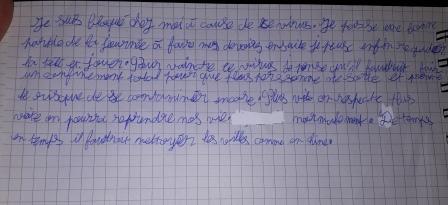 Je suis bloqué chez moi à cause de ce virus. Je passe une bonne
partie de la journée à faire mes devoirs ensuite je peux enfin regarder
la télé et jouer. Pour vaincre ce virus je pense qu'il faudrait faire
un confinement total pour que plus personne ne sorte et prenne
le risque de se contaminer encore. Plus vite on respecte plus
vite on pourra reprendre nos vies normalement. De temps
en temps il faudrait nettoyer les villes comme en Chine.